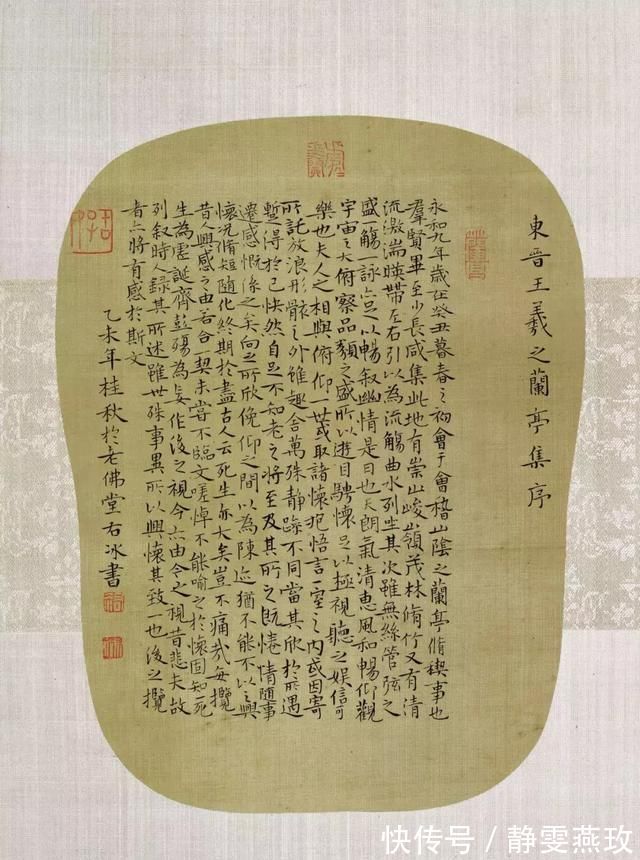 東晉王羲之蘭亭集序
永和九年歲在癸丑暮春之初會于會稽山陰之蘭亭脩稧事也
羣賢畢至少長咸集此地有崇山峻嶺茂林脩竹又有清
流激湍暎帶左右引以為流觴曲水列坐其次雖無絲管弦之
盛一觴一詠亦足以暢敘幽情是日也天朗氣清惠風和暢仰觀
宇宙之大俯察品類之盛所以遊目騁懷足以極視聽之娛信可
樂也夫人之相與俯仰一世或取諸懷抱悟言一室之內或因寄
所託放浪形骸之外雖趣舍萬殊靜躁不同當其欣於所遇
蹔得於己快然自足不知老之將至及其所之既惓情隨事
遷感慨係之矣向之所欣俛仰之間以為陳迹猶不能不以之興
懷況脩短隨化終期於盡古人云死生亦大矣豈不痛哉每攬
昔人興感之由若合一契未嘗不臨文嗟悼不能喻之於懷固知一死
生為虛誕齊彭殤為妄作後之視今亦由今之視昔悲夫故
列敘時人錄其所述雖世殊事異所以興懷其致一也後之攬
者亦將有感於斯文
乙未年桂秋於老佛堂右冰書
快传号/静雯燕玫